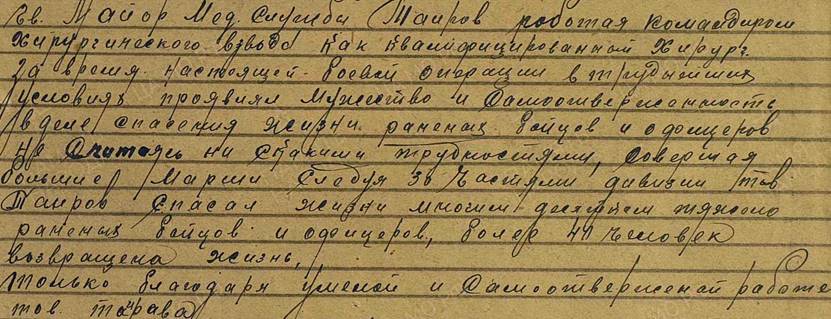 Гв. Майор Мед. службы Таиров работая командиром
хирургического взвода как квалифицированный хирург.
За время настоящей боевой операции в труднейших
условиях проявил мужество и самоотверженность
в деле спасения жизни раненых бойцов и офицеров
не считаясь ни с какими трудностями, совершая
большие марши следуя за частями дивизии тов.
Таиров спасал жизни многим десяткам тяжело
раненых бойцов и офицеров, более 40 человек
возвращена жизнь,
только благодаря умелой и самоотверженой работе
тов.